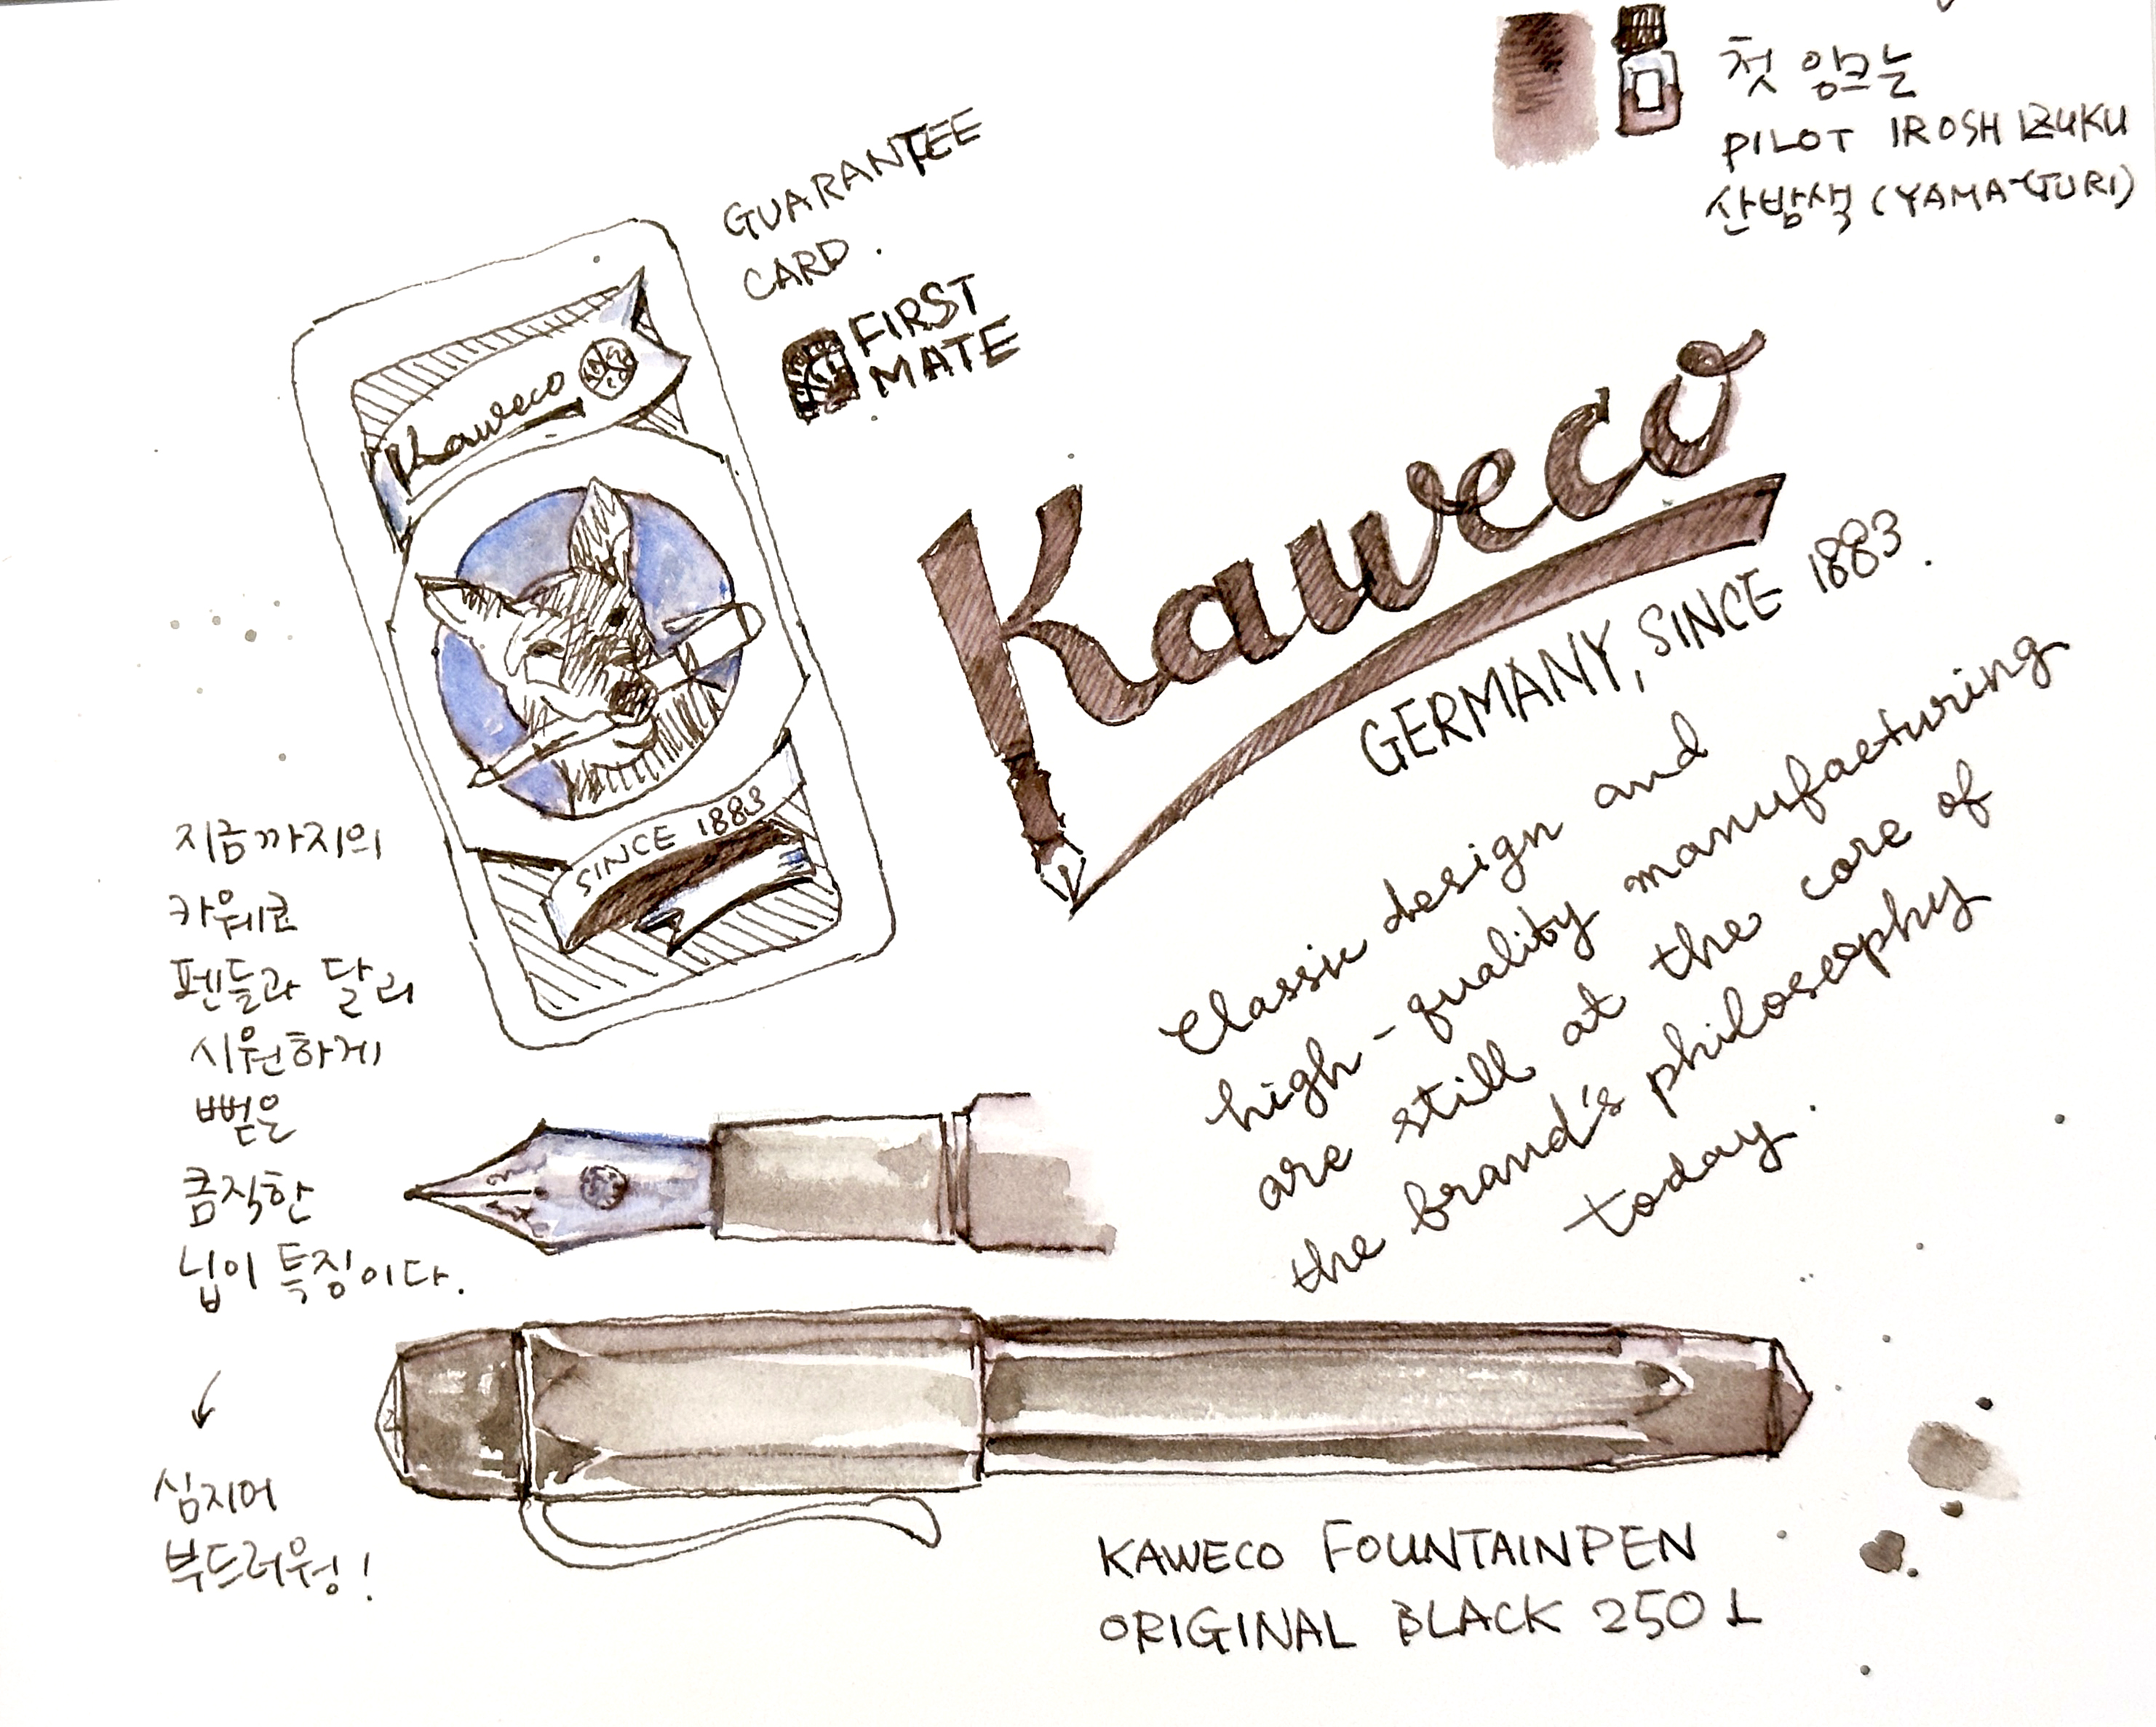 첫 잉크는
PILOT IROSHIZUKU
산밤색 (YAMA-GURI)
GUARANTEE
CARD.
FIRST
MATE
Kaweco
SINCE 1883
Kaweco
GERMANY, SINCE 1883.
Classic design and
high-quality manufacturing
are still at the core of
the brand's philosophy
today.
지금까지의
카웨코
펜들과 달리
시원하게
뻗은
큼직한
닙이 특징이다.
심지어
부드러웡!
KAWECO FOUNTAINPEN
ORIGINAL BLACK 250 L